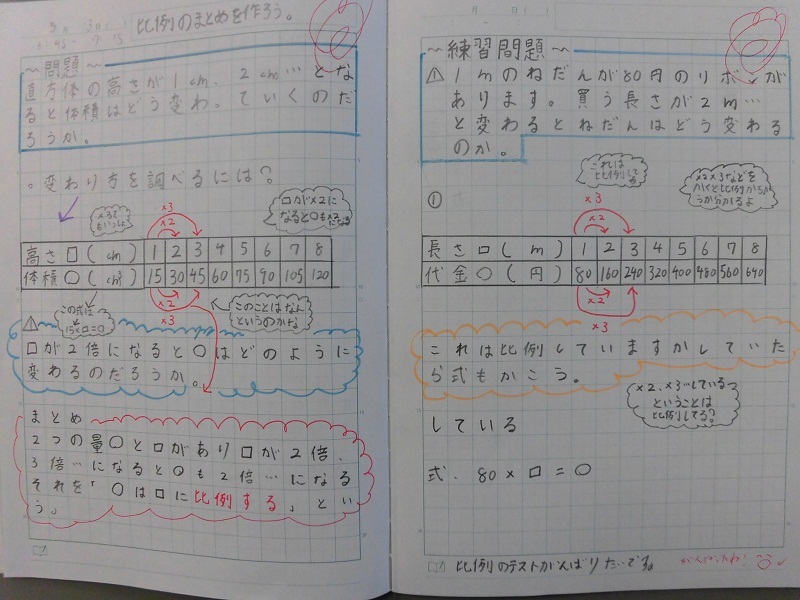 比例のまとめを作ろう。
～問題～
直方体の高さが1cm、2cm…とな
ると体積はどう変わっていくのだ
ろうか。
。変わり方を調べるには?
□が×2に
なると○も×2になる
×3
×2
高さ□(cm) 1 2 3 4 5 6 7 8
体積○(cm³) 15 30 45 60 75 90 105 120
×2
×3
この式は
15×□=○
このことはなん
というのかな
□が2倍になると○はどのように
変わるのだろうか。
まとめ
2つの量○と□があり□が2倍、
3倍…になると○も2倍…になる
それを「○は□に比例する」とい
う」
～練習問題～
1mのねだんが80円のリボンが
あります。買う長さが2m…
と変わるとねだんはどう変わる
のか。
これは
比例してる
×2×3などを
かくと比例かどうか分かるよ
①
×3
×2
長さ□(m) 1 2 3 4 5 6 7 8
代金○(円) 80 160 240 320 400 480 560 640
×2
×3
これは比例していますかしていた
ら式もかこう。
×2、×3…している
ということは
比例してる?
している
式.80×□=○
比例のテストがんばりたいです。